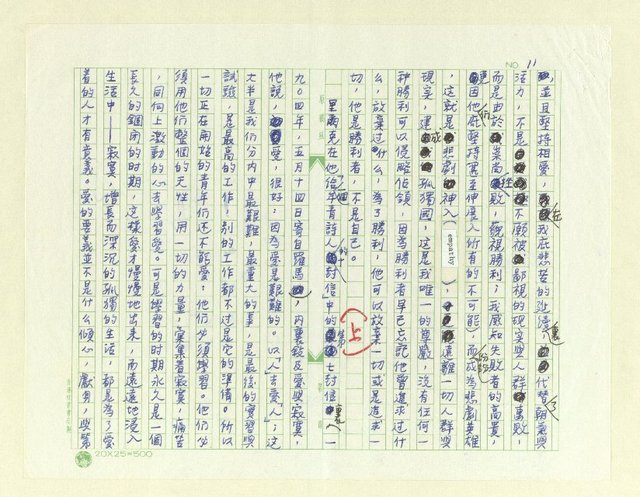 NO. 11
,並且堅持相愛,在我底悲苦的迆邐裏,代替朝氣與
活力,不是不願被鄙視的現實與人群裏敗,
而是由於崇尚狂敗,藐視勝利;我感知失敗者的高貴,
因他們堅持甚至伸展入所有的不可能,而成為悲劇英雄
,這就是悲劇神入(empathy)。遠離一切人群與
現實,建成孤獨國,這是我唯一的奧藏,沒有任何一
種勝利可以侵略佔領,因為勝利者早已忘記他曾追求過什
么,放棄過什么,為了勝利,他可以放棄一切或是追求一
切,他是勝利者,不是自己。
上
里爾克在他給一個年青詩人的十封信中的第七封信裏(一
九〇四年,五月十四日寄自羅馬),內裏敘及愛與寂寞,
他說,愛,很好;因為愛是艱難的。以「人」去愛「人」;這
大半是我們分內中最艱難,最重大的事,是最後的實習與
試驗,是最高的工作,別的工作都不过是它的準備。所以
一切正在開始的青年们还不能愛。他们必須學習。他们必
須用他们整個的天性,用一切的力量,集聚着寂寞,痛苦
,向向上激動的心去學習愛。可是學習的時期永久是一個
長久的錮閉的时期,這樣愛才慢慢地出來,而遠遠地浸入
生活中——寂寞,增長而深沉的孤獨的生活,都是為了愛
着的人才有意義。愛的要義並不是什么傾心,獻身,與第
20X25=500